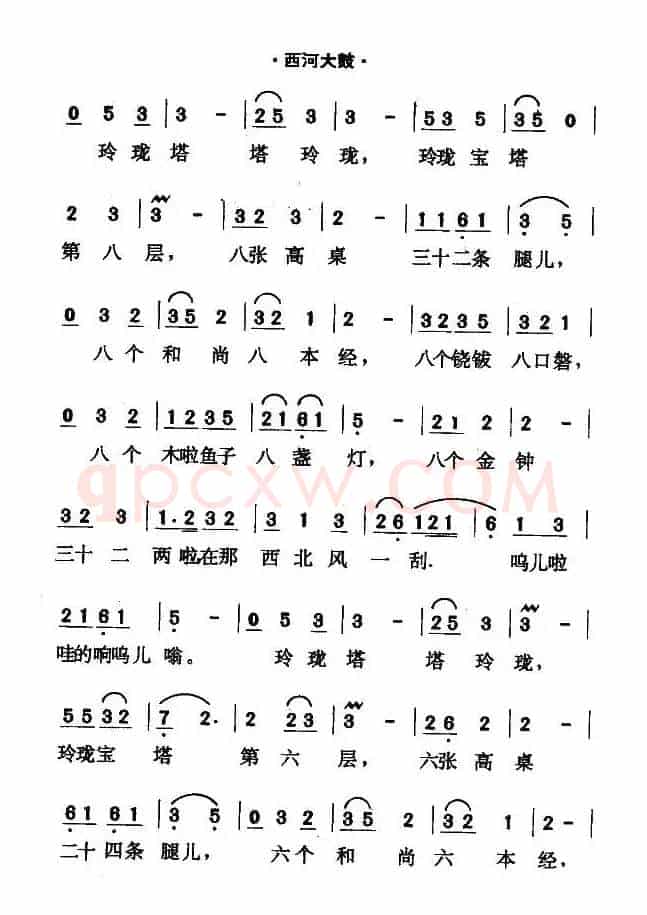 ·西河大鼓·
0 5 3 | 3 - | 25 3 | 3 - | 53 5 | 35 0 |
玲珑塔 塔玲珑, 玲珑宝塔
2 3 | 3 - | 32 3 | 2 - | 1161 | 3 5 |
第八层, 八张高桌 三十二条腿儿,
0 3 2 | 35 2 | 32 1 | 2 - | 3235 | 321 |
八个和尚八本经, 八个铙钹八口磬,
0 3 2 | 1235 | 2161 | 5 - | 21 2 | 2 - |
八个木啦鱼子八盏灯, 八个金钟
qpcxw.COM
32 3 | 1.232 | 3 1 3 | 26 121 | 6 1 3 |
三十二两啦在那西北风一刮. 呜儿啦
2161 | 5 - | 0 5 3 | 3 - | 25 3 | 3 - |
哇的响呜儿嗡。 玲珑塔 塔玲珑,
5532 | 7 2. | 2 23 | 3 - | 26 2 | 2 - |
玲珑宝塔 第六层, 六张高桌
61 61 | 3 5 | 032 | 35 2 | 32 1 | 2 - |
二十四条腿儿, 六个和尚六本经,